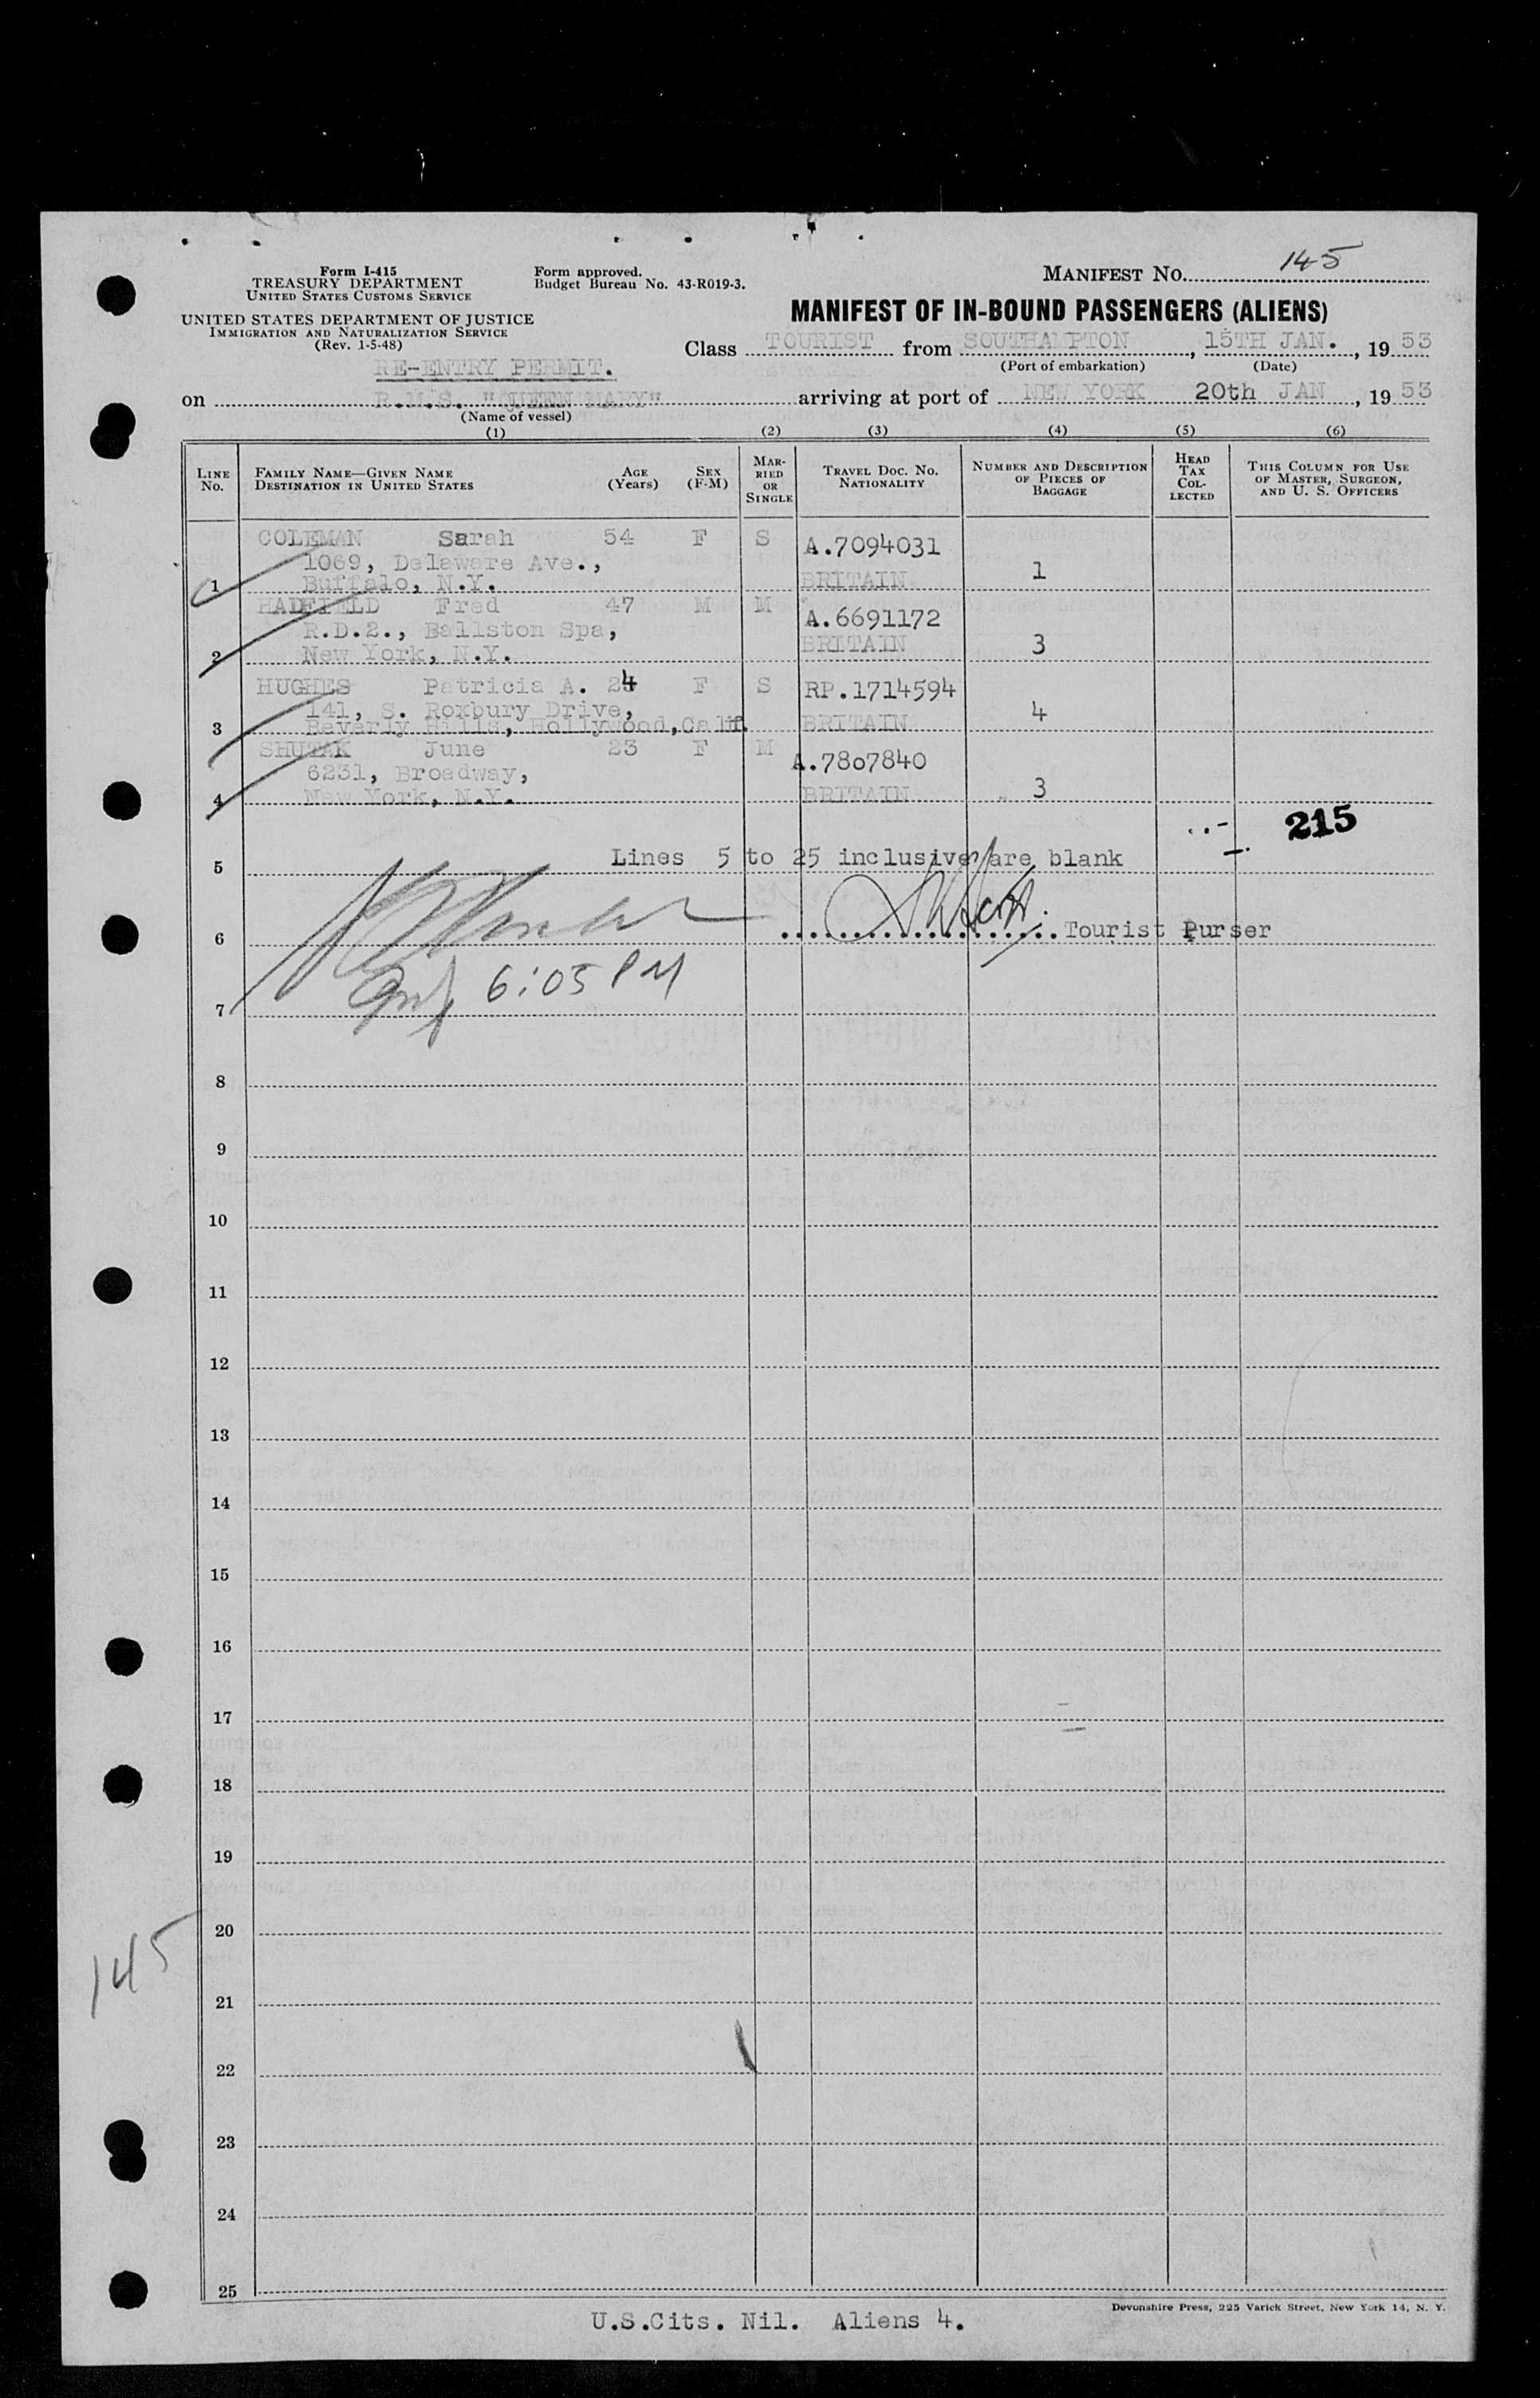 Form I-415
TREASURY DEPARTMENT
UNITED STATES CUSTOMS SERVICE
UNITED STATES DEPARTMENT OF JUSTICE
IMMIGRATION AND NATURALIZATION SERVICE
(Rev. 1-5-48)
Form approved.
Budget Bureau No. 43-R019-3.
MANIFEST NO. 145
MANIFEST OF IN-BOUND PASSENGERS (ALIENS)
Class TOURIST from SOUTHAMPTON, 15TH JAN., 19 53
(Port of embarkation) (Date)
RE-ENTRY PERMIT.
on R.M.S. "QUEEN MARY" arriving at port of NEW YORK 20th JAN, 19 53
(Name of vessel)
(1) (2) (3) (4) (5) (6)
LINE NO. FAMILY NAME—GIVEN NAME DESTINATION IN UNITED STATES AGE (Years) SEX (F-M) MARRIED OR SINGLE TRAVEL DOC. NO. NATIONALITY NUMBER AND DESCRIPTION OF PIECES OF BAGGAGE HEAD TAX COLLECTED THIS COLUMN FOR USE OF MASTER, SURGEON, AND U. S. OFFICERS
COLEMAN Sarah 54 F S A.7094031
1069, Delaware Ave.,
1 Buffalo, N.Y. BRITAIN 1
HADFIELD Fred 47 M M A.6691172
R.D.2., Ballston Spa,
2 New York, N.Y. BRITAIN 3
HUGHES Patricia A. 24 F S RP.1714594
141, S. Roxbury Drive,
3 Beverly Hills, Hollywood, Calif. BRITAIN 4
SHUTAK June 23 F M A.7807840
6231, Broadway,
4 New York, N.Y. BRITAIN 3
215
5 Lines 5 to 25 inclusive are blank
6 Tourist Purser
6:05 PM
7
8
9
10
11
12
13
14
15
16
17
18
19
20
145
21
22
23
24
25
Devonshire Press, 225 Varick Street, New York 14, N. Y.
U.S.Cits. Nil. Aliens 4.